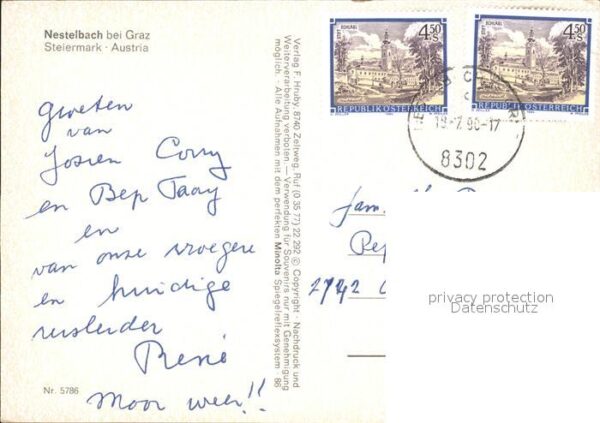 Nestelbach bei Graz
Steiermark · Austria
groeten
van
Josien Corry
en Bep Taay
en
van onze vroegere
en huidige
reisleider
René
Mooi weer!!
Nr. 5786
Verlag F. Hruby, 8740 Zeltweg, Ruf (0 35 77) 22 292 © Copyright · Nachdruck und
Weiterverarbeitung verboten. — Verwendung für Souvenirs nur mit Genehmigung
möglich. · Alle Aufnahmen mit dem perfekten Minolta Spiegelreflexsystem · 88
4.50 S
REPUBLIK ÖSTERREICH
4.50 S
REPUBLIK ÖSTERREICH
-17
8302
fam.
2742
privacy protection
Datenschutz